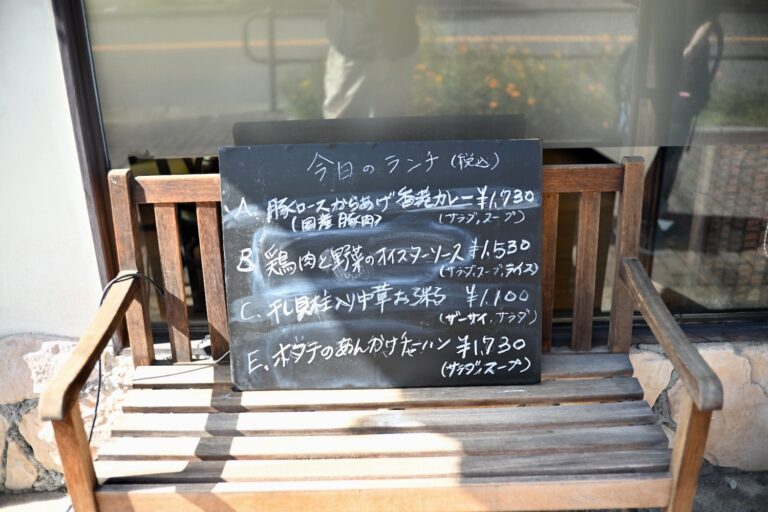 今日のランチ (税込)
A. 豚ロースからあげ香菜カレー ¥1,730
(国産豚肉) (サラダ、スープ)
B. 鶏肉と野菜のオイスターソース ¥1,530
(サラダ、スープ、ライス)
C. 干し貝柱入り中華お粥 ¥1,100
(ザーサイ、サラダ)
E. ホタテのあんかけチャーハン ¥1,730
(サラダ、スープ)